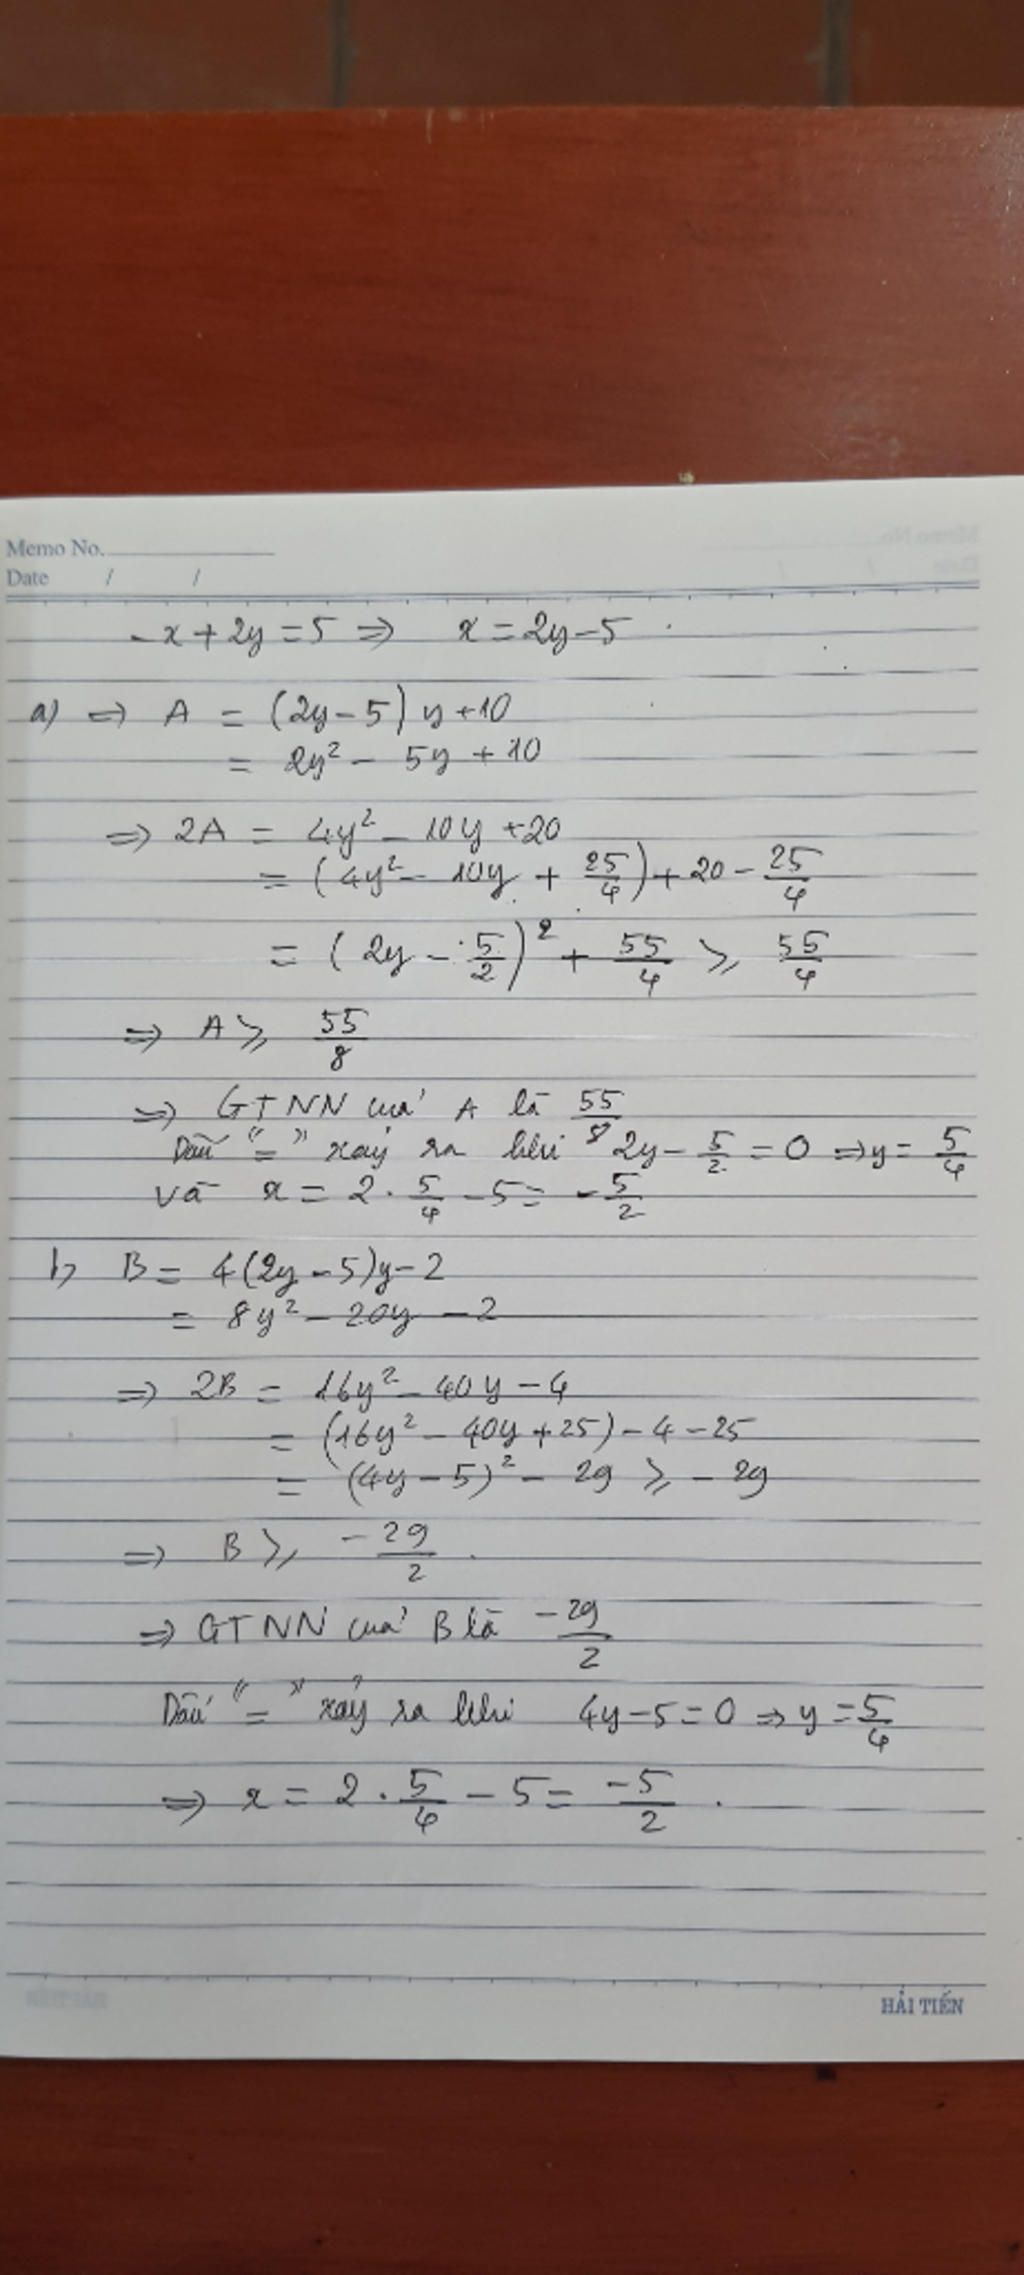 Memo No.
Date / /
-x + 2y = 5 => x = 2y - 5
a) => A = (2y - 5) y + 10
= 2y² - 5y + 10
=> 2A = 4y² - 10y + 20
= (4y² - 10y + 25/4) + 20 - 25/4
= (2y - 5/2)² + 55/4 ⩾ 55/4
=> A ⩾ 55/8
=> GTNN của A là 55/8
Dấu "=" xảy ra khi 2y - 5/2 = 0 => y = 5/4
và x = 2 . 5/4 - 5 = -5/2
b, B = 4(2y - 5)y - 2
= 8y² - 20y - 2
=> 2B = 16y² - 40y - 4
= (16y² - 40y + 25) - 4 - 25
= (4y - 5)² - 29 ⩾ - 29
=> B ⩾ -29/2
=> GTNN của B là -29/2
Dấu "=" xảy ra khi 4y - 5 = 0 => y = 5/4
=> x = 2 . 5/4 - 5 = -5/2 .
HẢI TIẾN